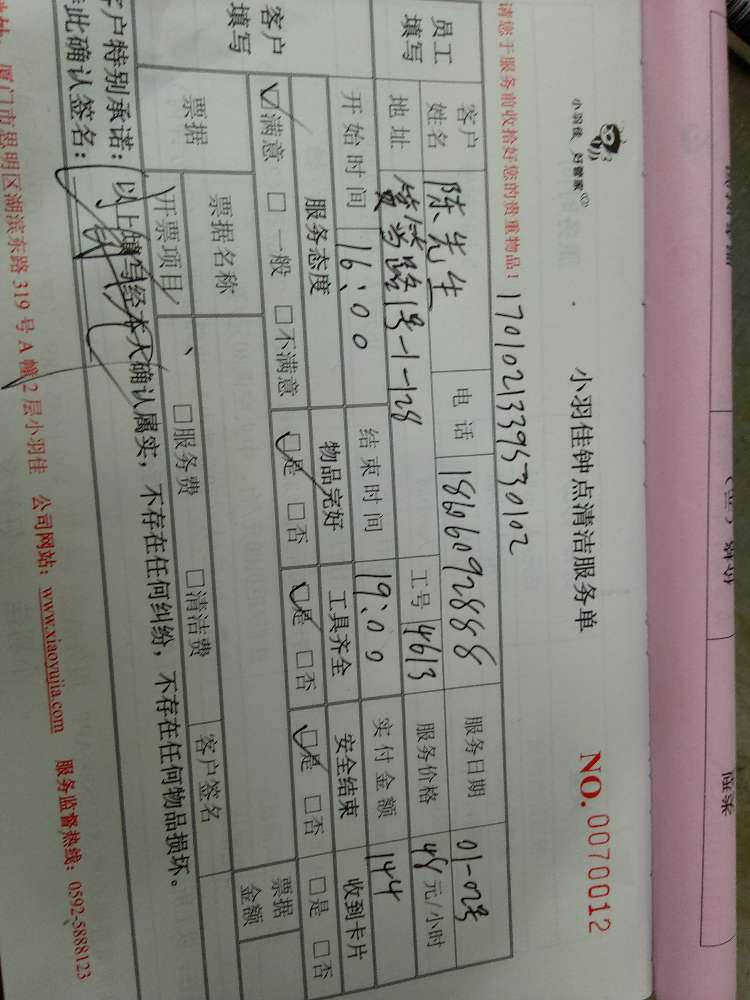 小羽佳 好管家
小羽佳钟点清洁服务单
NO. 0070012
请您于服务前收拾好您的贵重物品!
1701021339530102
员工填写
客户姓名 陈先生 电话 18606092888 服务日期 01-02号
地址 筼筜路1号-1-128 工号 4613 服务价格 48元/小时
开始时间 16:00 结束时间 19:00 实付金额 144
客户填写
服务态度 物品完好 工具齐全 安全结束 收到卡片
☑满意 □一般 □不满意 ☑是 □否 ☑是 □否 ☑是 □否 □是 □否
票据 票据名称 票据金额
开票项目 □服务费 □清洁费 客户签名
户特别承诺:以上填写经本人确认属实,不存在任何纠纷,不存在任何物品损坏。
此确认签名:
厦门市思明区湖滨东路319号A幢2层小羽佳 公司网站:www.xiaoyujia.com 服务监督热线:0592-5888123